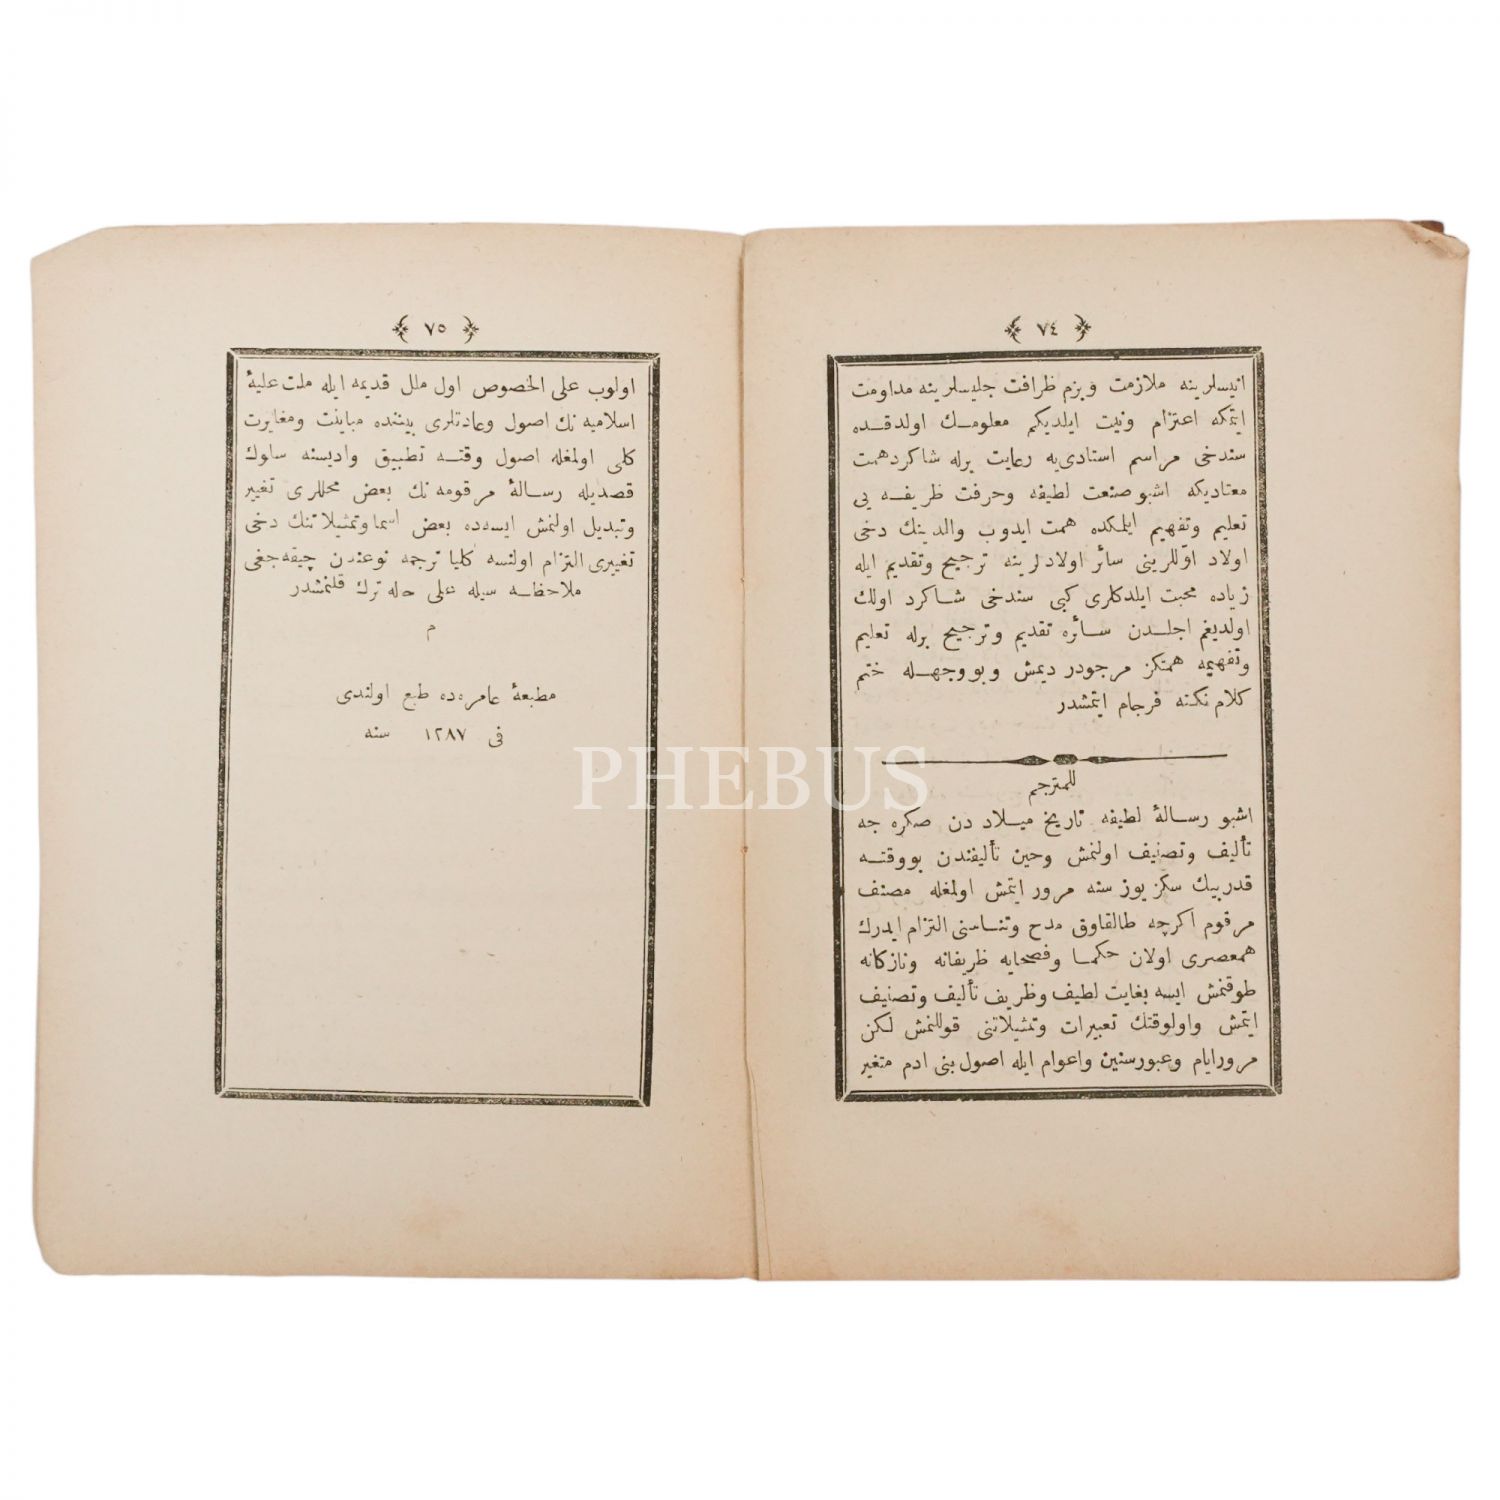 ٧٤
انیسلرینه ملازمت وبزم ظرافت جلیسلرینه مداومت
ایتمکه اعتزام ونیت ایلدیکم معلومـك اولدقـده
سندخی مراسم استادی‌یه رعایت برله شاکردهمت
معتادیکه اشبو صنعت لطیفه وحرفت ظریفـه یی
تعلیم وتفهیم ایلمکده همت ایدوب والدینك دخی
اولاد اوّللرینی سائر اولادلرینه ترجیح وتقدیم ایله
زیاده محبت ایلدکلری کبی سندخی شـاکرد اولك
اولدیغم اجلـدن سـائره تقدیم وترجیح برله تعلیم
وتفهیمه همتکز مرجودر دیمش وبووجهـله ختم
کلام نکته فرجام ایتمشدر
للمترجم
اشبو رسـالهٔ لطیفه تاریخ میـلاد دن صکره جه
تألیف وتصنیف اولنمش وحین تألیفندن بووقتـه
قدربیك سکز یوز سنه مرور ایتمش اولمغله مصنف
مرقوم اکرچه طالقاوق مدح وثنـاسنی التزام ایدرك
همعصری اولان حکمـا وفصحایه ظریفانه ونازکانه
طوقنمش ایسه بغایت لطیف وظریف تألیف وتصنیف
ایتمش واولوقتك تعبیرات وتمثیلاتنی قوللنمش لکن
مرورایام وعبورسنین واعوام ایله اصول بنی ادم متغیر
٧٥
اولوب علی الخصوص اول ملل قدیمه ایله ملت علیهٔ
اسلامیه نك اصول وعادتلری بیننده مباینت ومغایرت
کلی اولمغله اصول وقتـه تطبیق وادیسنه سلوك
قصدیله رسالهٔ مرقومه نك بعض محللری تغییر
وتبدیل اولنمش ایسه‌ده بعض اسما وتمثیلاتنك دخی
تغییری التزام اولنسه کلیا ترجمه نوعندن چیقه‌جغی
ملاحظـه سیله علی حاله ترك قلنمشدر
م
مطبعهٔ عامره‌ده طبع اولندی
فی ١٢٨٧ سنه
PHEBUS